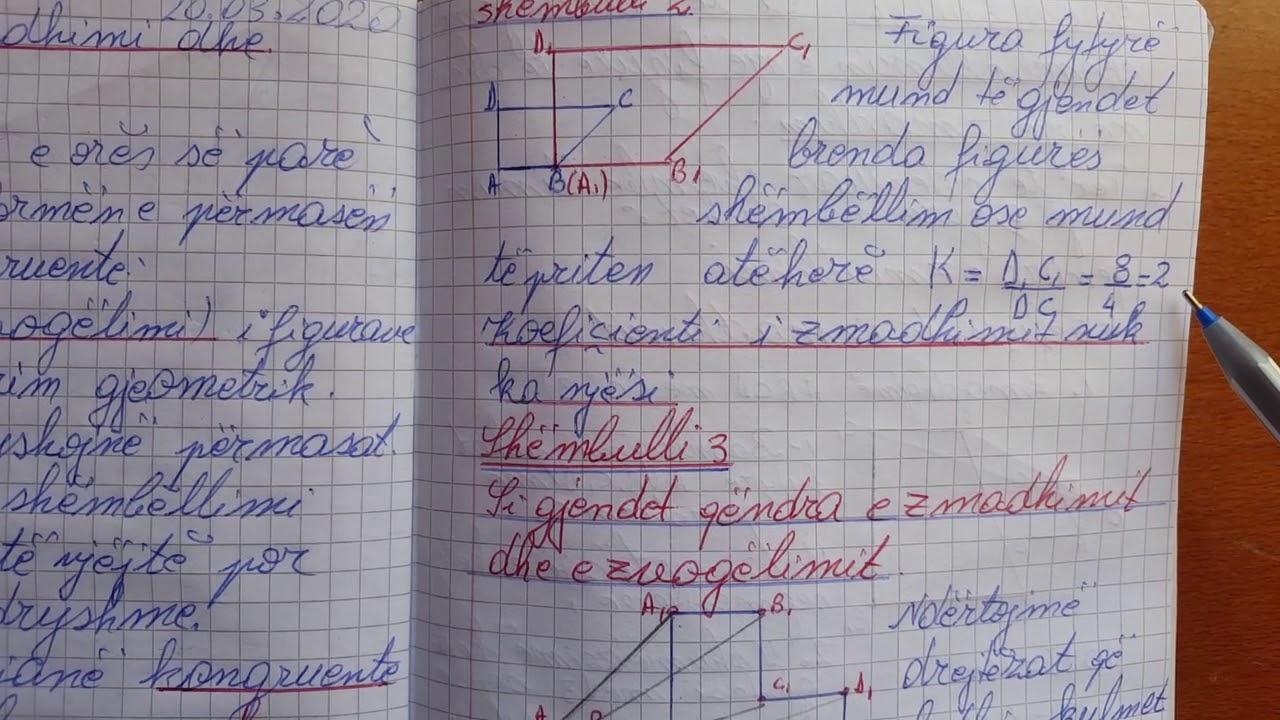 20.03.2020
dhimi dhe
e orës së parë
ormën e përmasën
ruente.
ogëlimi) i figurave
im gjeometrik.
përmasat.
shëmbëllimi
të njëjtë por
dryshme.
janë kongruente
shëmbulli 2
D1 C1
D C
A B(A1) B1
Figura fytyrë
mund të gjendet
brenda figurës
shëmbëllim ose mund
të priten atëherë K = D1C1/DC = 8/4 = 2
Koeficienti i zmadhimit nuk
ka njësi
Shëmbulli 3
Si gjendet qëndra e zmadhimit
dhe e zvogëlimit.
A1 B1
C1 D1
A B
Ndërtojmë
drejtëzat që
kulmet